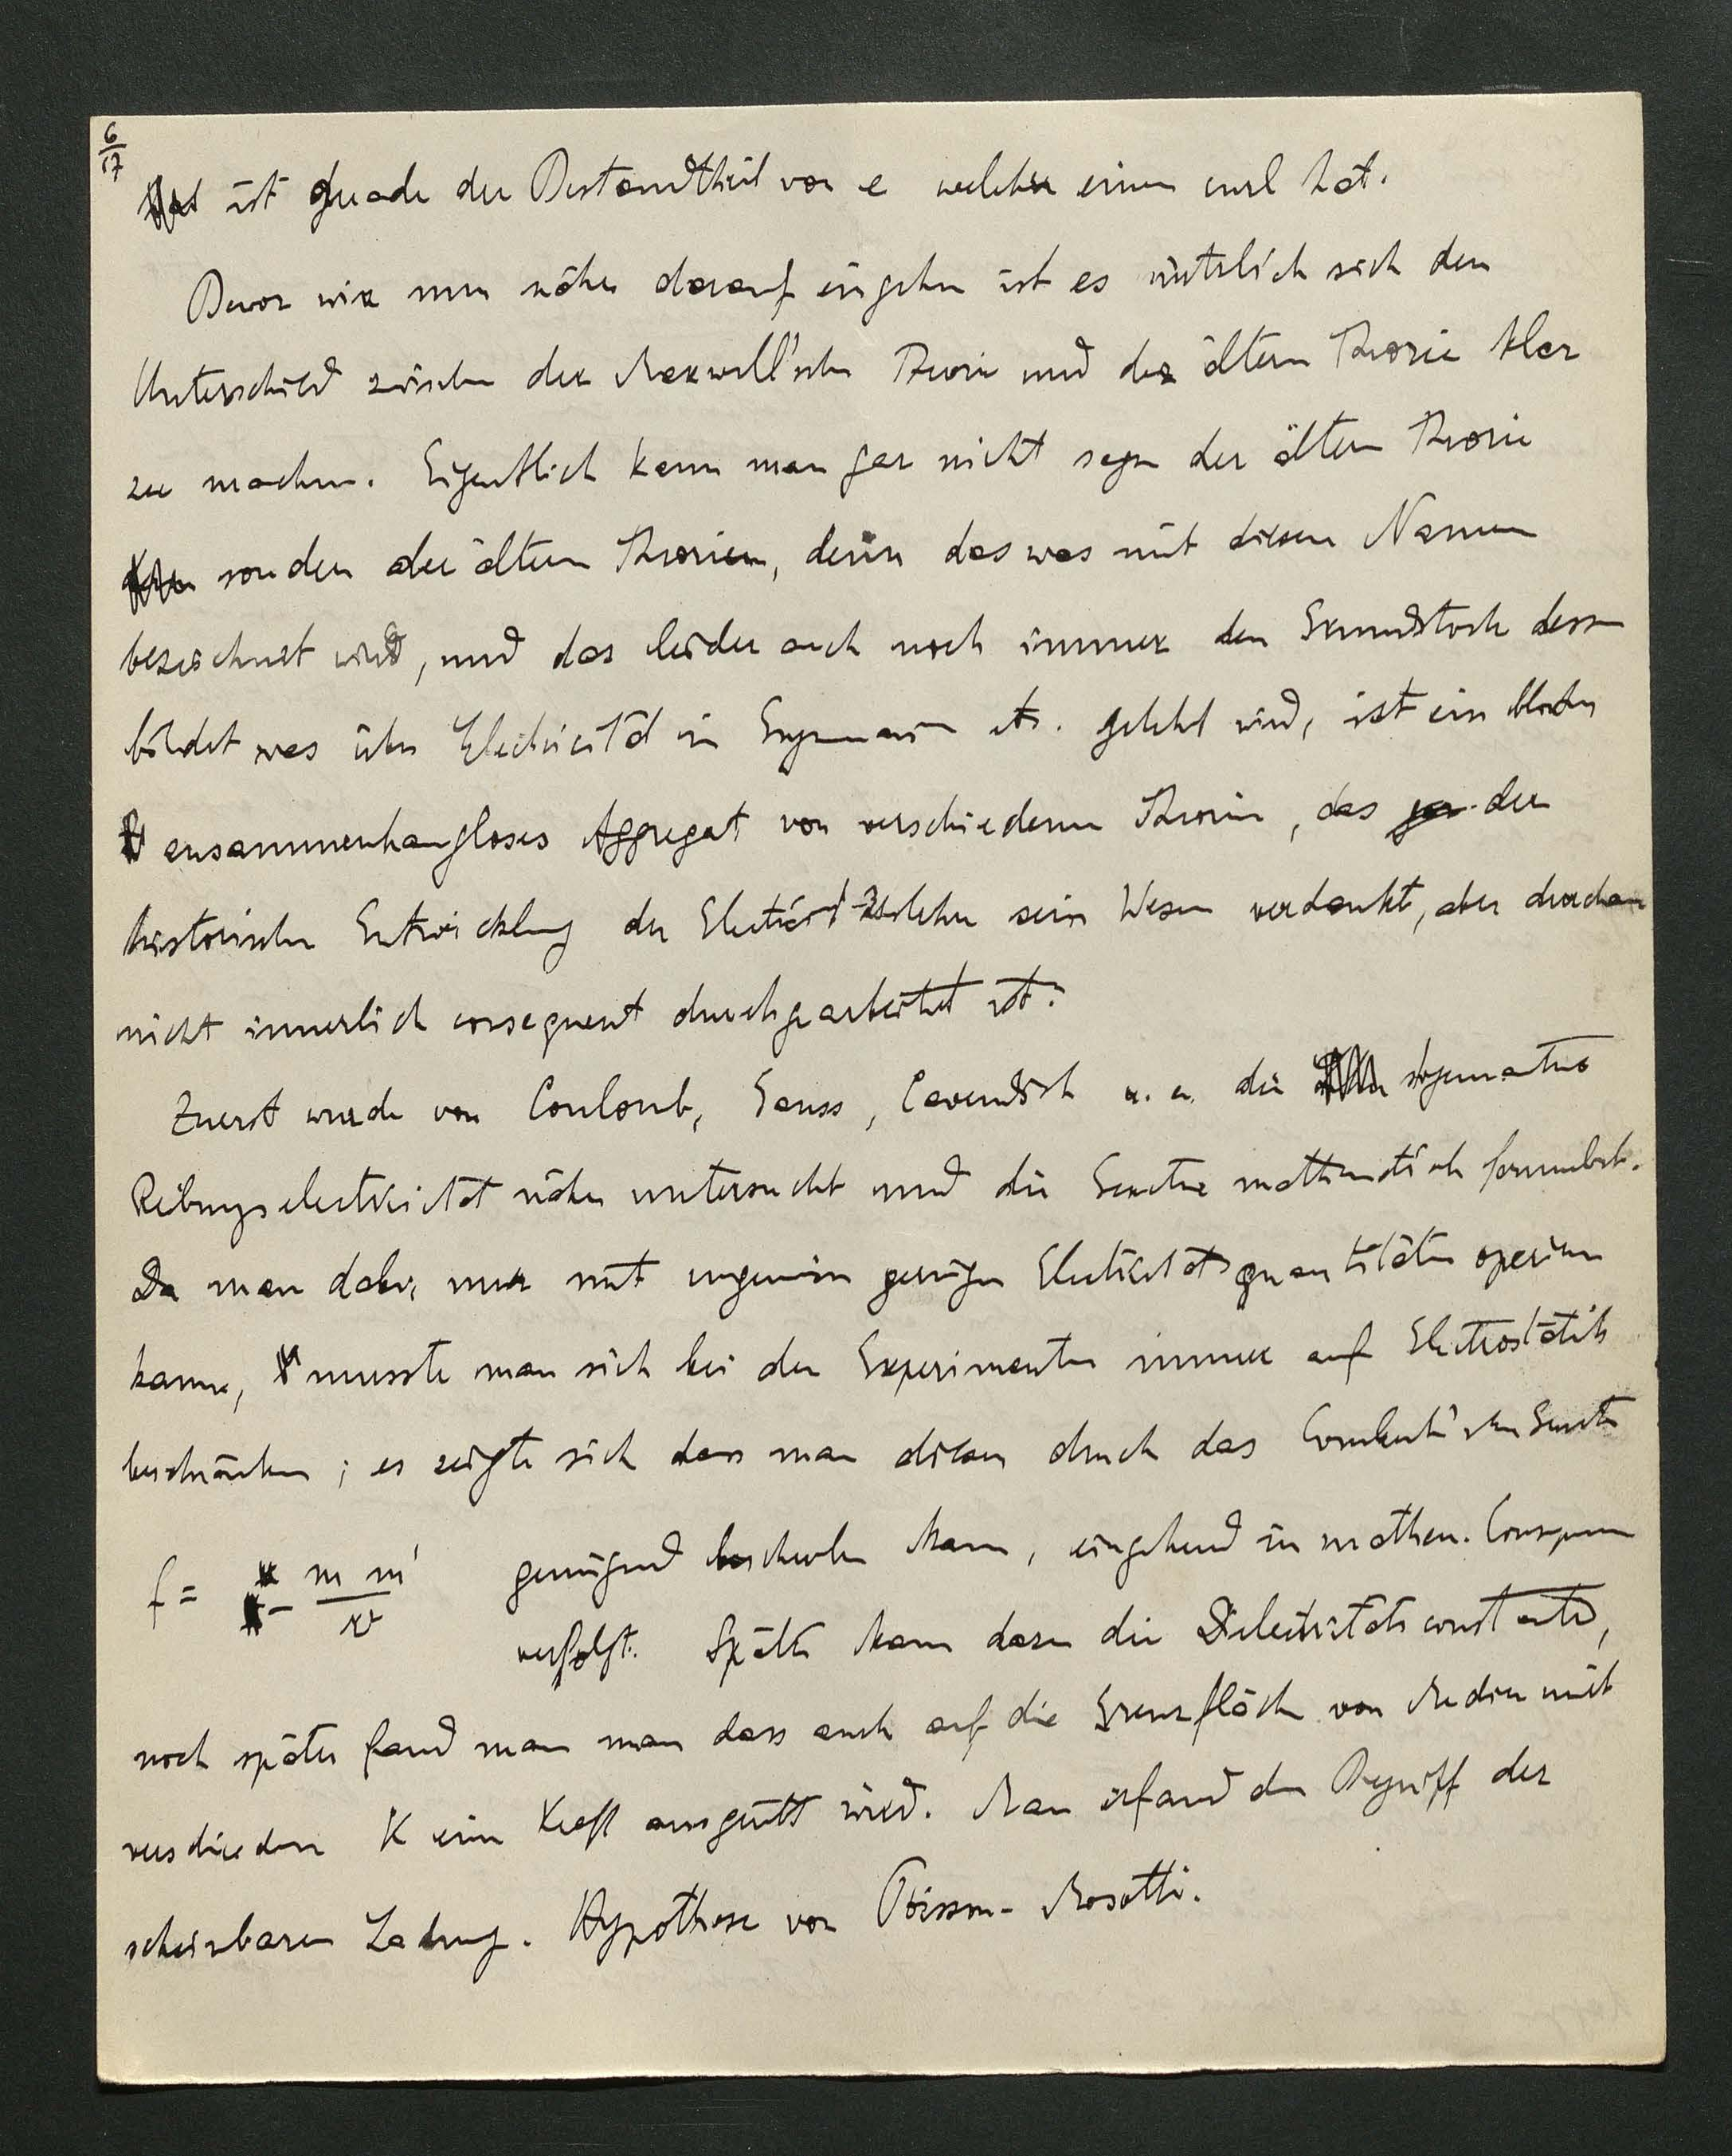 6/17
ist gerade der Bestandtheil von e welcher einen curl hat.
Bevor wir nun näher darauf eingehn ist es nützlich sich den
Unterschied zwischen der Maxwell'schen Theorie und der ältern Theorie klar
zu machen. Eigentlich kann man gar nicht sagen der ältern Theorie
sondern der ältern Theorien, denn das was mit diesem Namen
bezeichnet wird, und das leider auch noch immer den Grundstock dessen
bildet was über Electricität in Gymnasien etc. gelehrt wird, ist ein
zusammenhangloses Aggregat von verschiedenen Theorien, das der
historischen Entwicklung der Electricitätslehre sein Wesen verdankt, aber durchaus
nicht innerlich consequent durchgearbeitet ist.
Zuerst wurde von Coulomb, Gauss, Cavendish u. a. die sogenannte
Reibungselectricität näher untersucht und die Gesetze mathematisch formulirt.
Da man dabei nur mit ungemein geringen Electricitätsquantitäten operiren
kann, musste man sich bei den Experimenten immer auf Electrostatik
beschränken; es zeigte sich dass man diese durch das Coulomb'sche Gesetz
f = m m' / r² genügend beschreiben kann, eingehend in mathem. Consequenzen
verfolgt. Später kam dazu die Dielectricitätsconstante,
noch später fand man man dass auch auf die Grenzfläche von Medien mit
verschiedenen K eine Kraft ausgeübt wird. Man erfand den Begriff der
scheinbaren Ladung. Hypothese von Poisson - Mosotti.